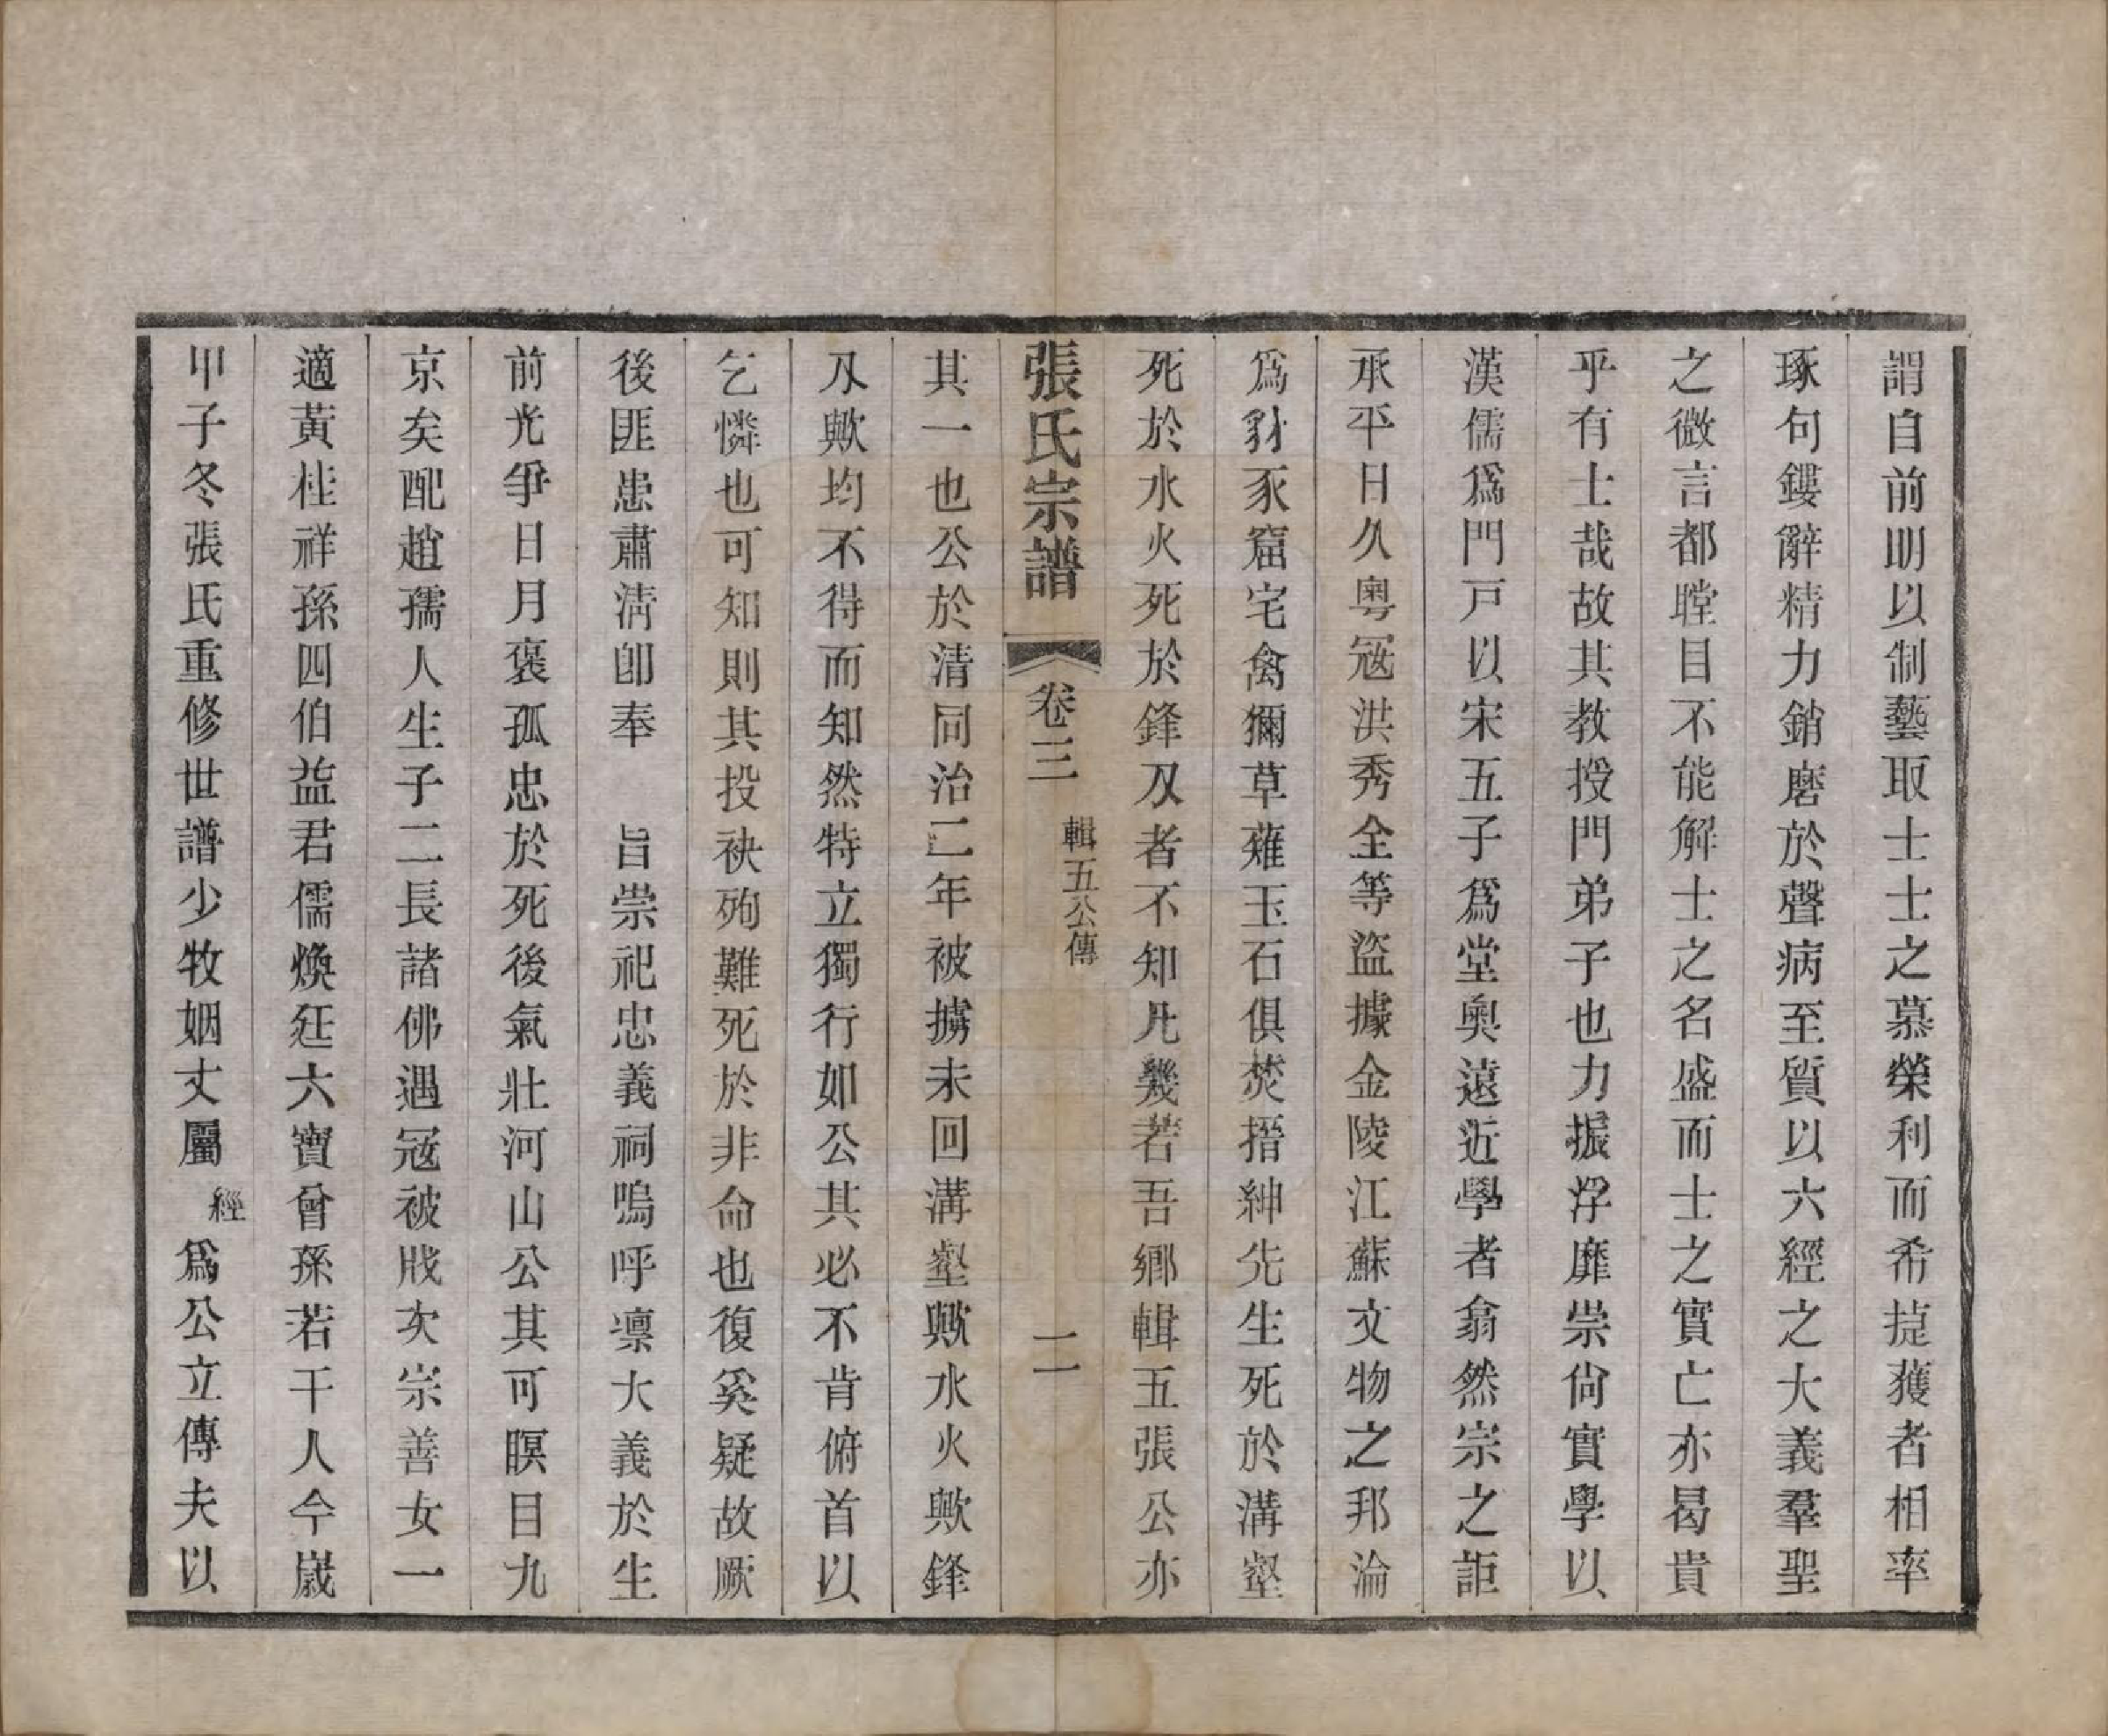 謂自前明以制藝取士士之慕榮利而希㨗獲者相率
琢句鏤辭精力銷磨於聲病至質以六經之大義羣聖
之微言都瞠目不能解士之名盛而士之實亡亦曷貴
乎有士哉故其教授門弟子也力振浮靡崇尙實學以
漢儒爲門戸以宋五子爲堂奧遠近學者翕然宗之詎
承平日久粵冦洪秀全等盜據金陵江蘇文物之邦淪
爲豺豕窟宅禽獮草薙玉石俱焚搢紳先生死於溝壑
死於水火死於鋒刄者不知凡幾若吾鄉輯五張公亦
張氏宗譜 卷三 輯五公傳 二
其一也公於清同治二年被擄未回溝壑歟水火歟鋒
刄歟均不得而知然特立獨行如公其必不肯俯首以
乞憐也可知則其投袂殉難死於非命也復奚疑故厥
後匪患肅淸卽奉 旨崇祀忠義祠嗚呼凛大義於生
前光爭日月褒孤忠於死後氣壯河山公其可瞑目九
京矣配趙孺人生子二長諸佛遇冦被戕次宗善女一
適黃桂祥孫四伯益君儒煥廷六寶曾孫若干人今嵗
甲子冬張氏重修世譜少牧姻丈屬經爲公立傳夫以